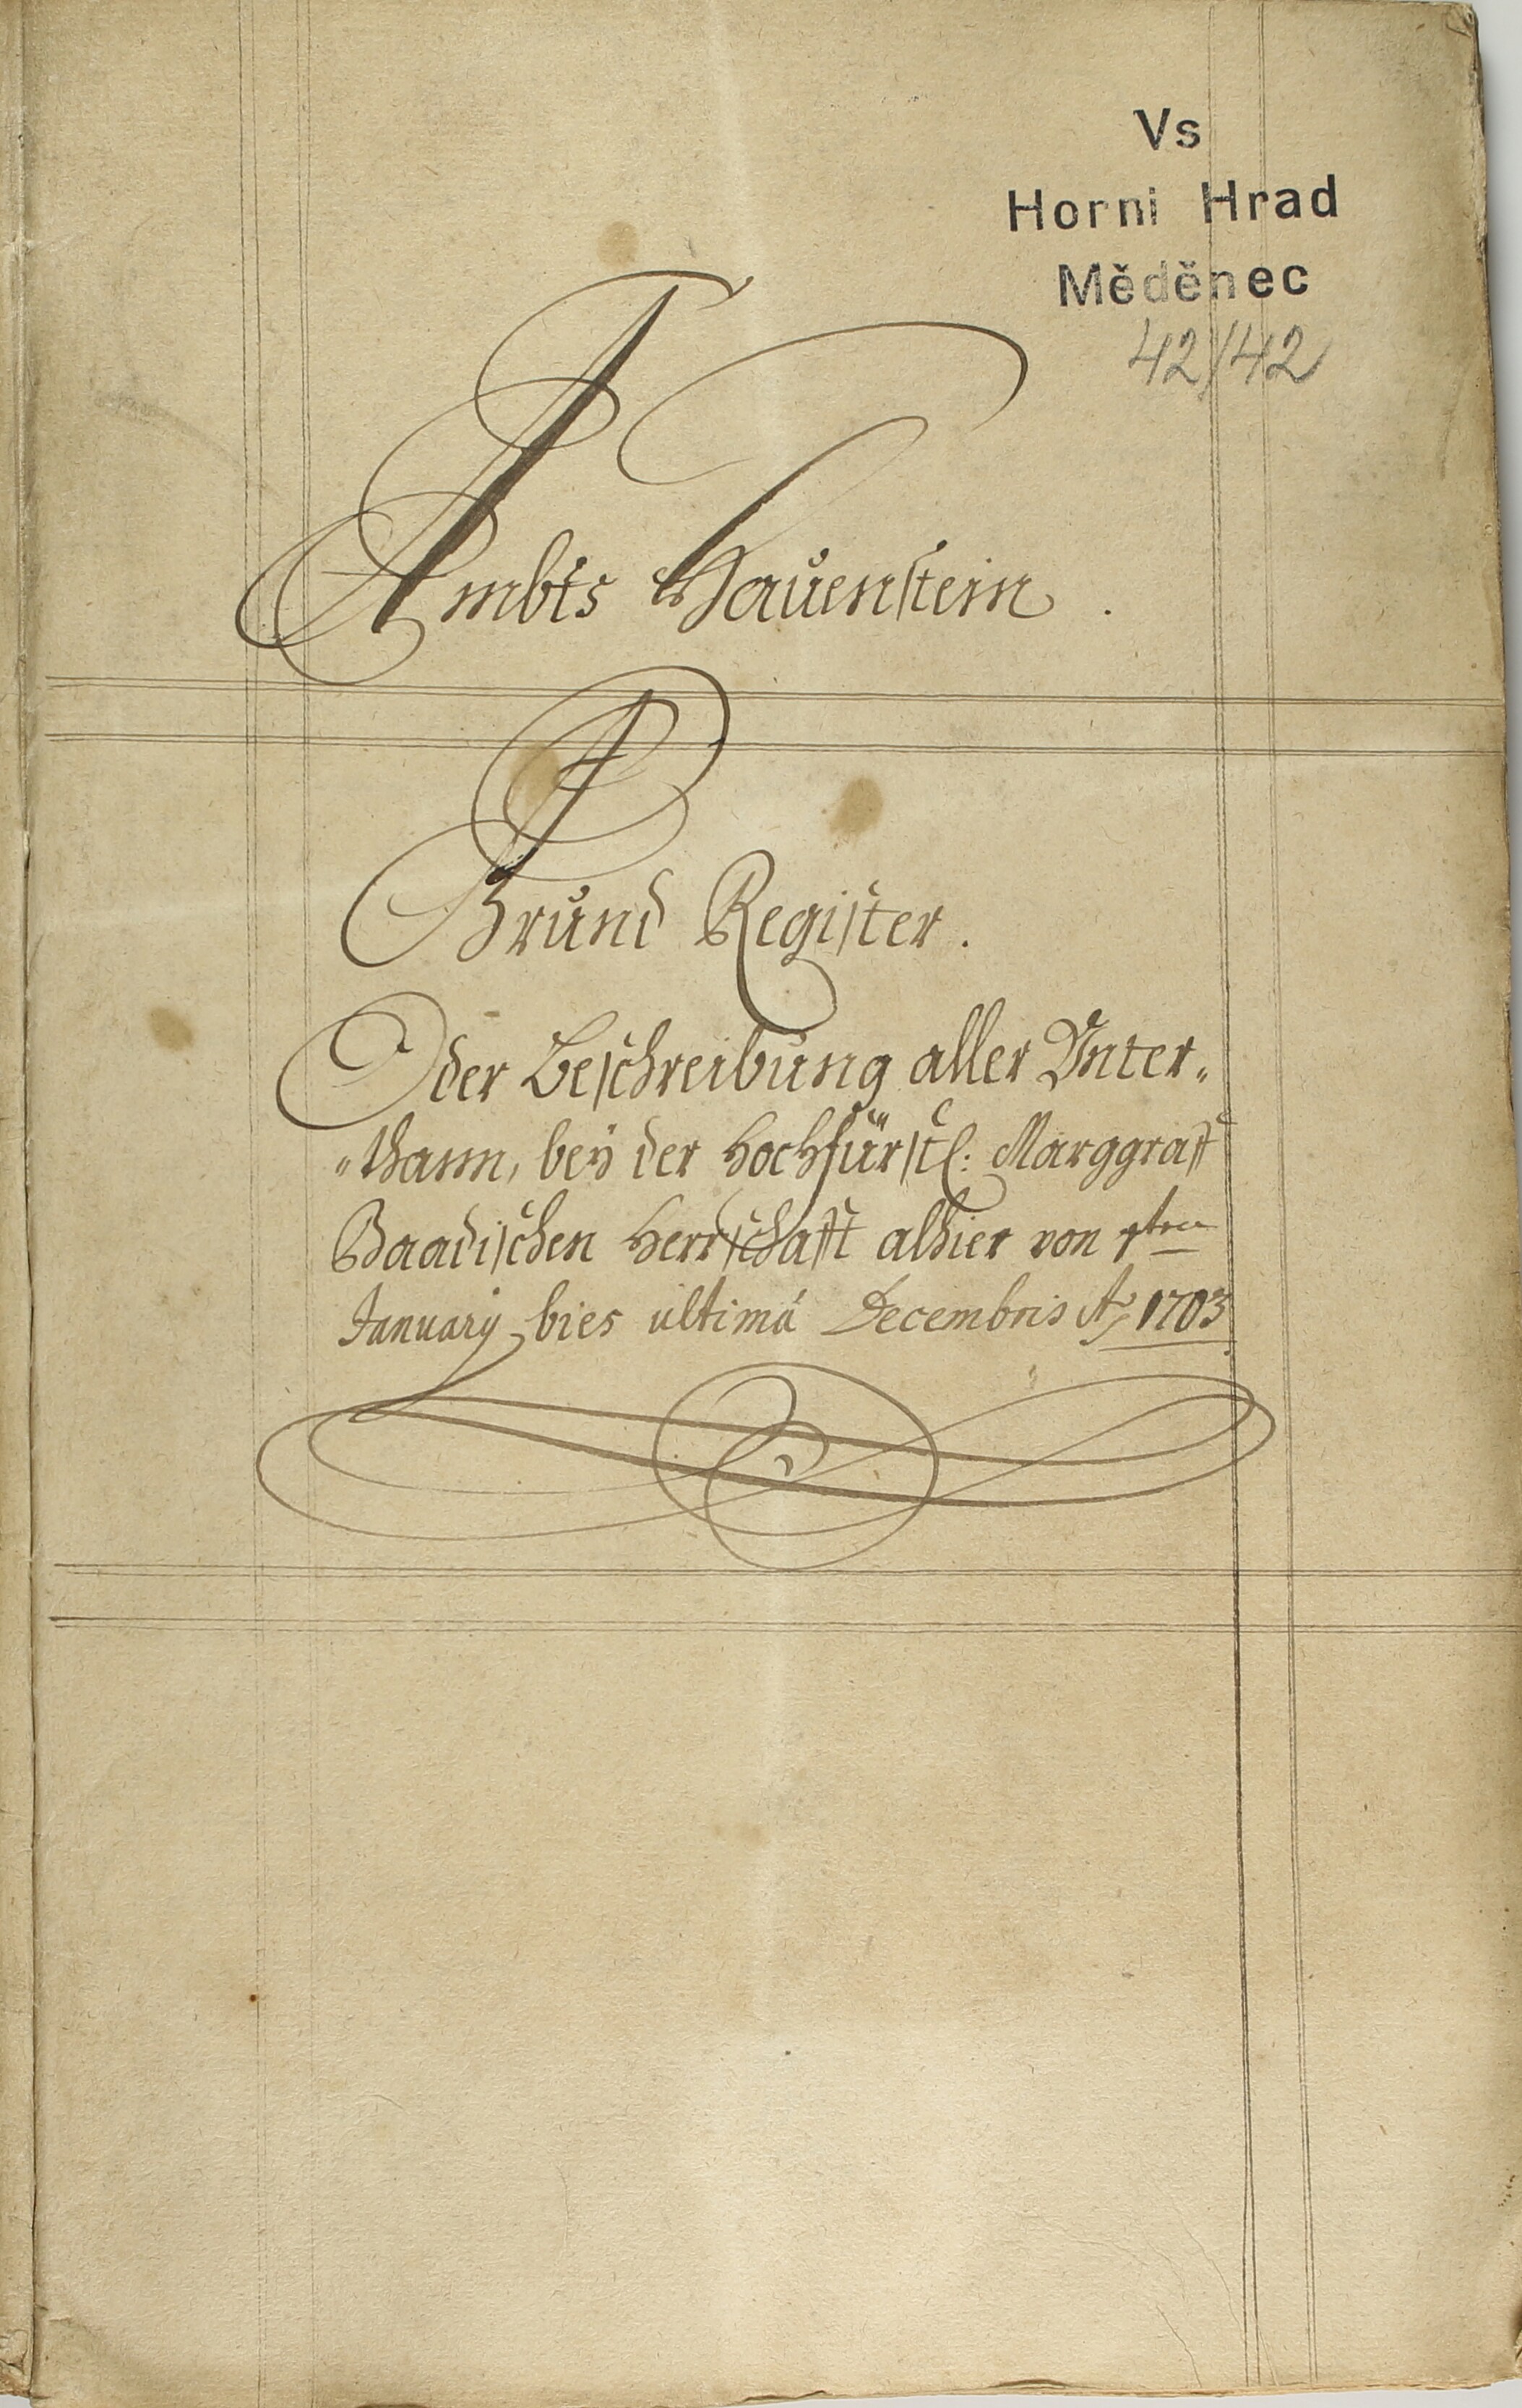 Vs
Horni Hrad
Měděnec
42/42
Ambts Hauenstein.
Grund Register.
Oder Beschreibung aller Unter„
„thann, beÿ der Hochfürstl: Marggraff
Baadischen Herrschafft alhier von 1ten
January bies ultimá Decembris Ao 1703